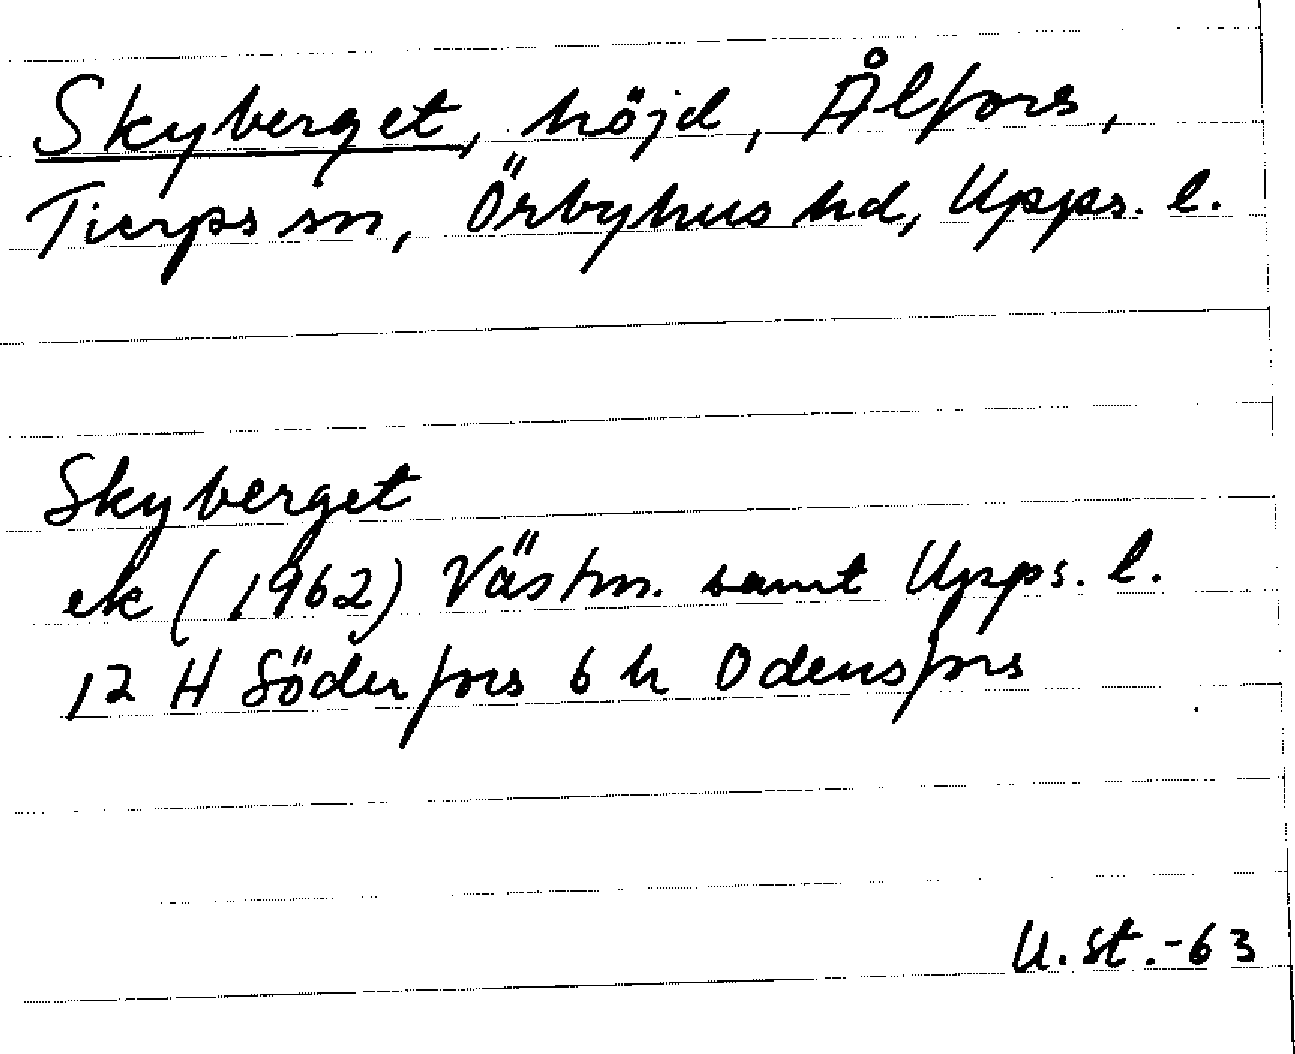 Skyberget, höjd, Ålfors,
Tierps sn, Örbyhus hd, Upps. l.
Skyberget
ek (1962) Västm. samt Upps. l.
12 H Söderfors 6 h Odensfors
U. St. -63